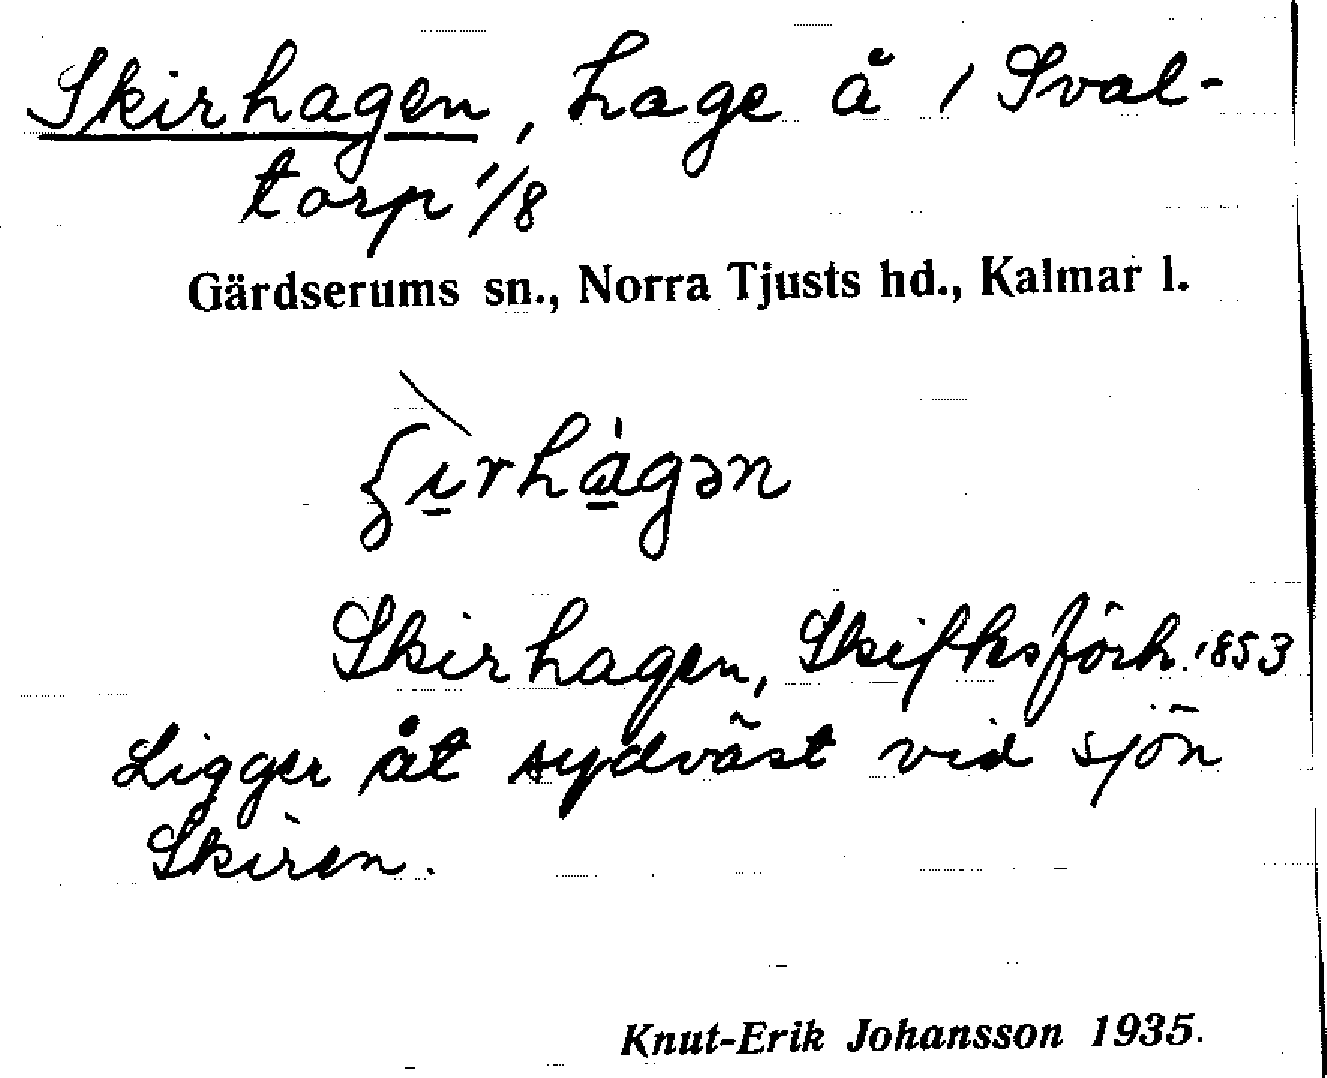 Skirhagen, hage å 1 Sval-
torp 1/8
Gärdserums sn., Norra Tjusts hd., Kalmar l.
Skirhagen, 1853
Ligger åt sydväst vid sjön
Skiren.
Knut-Erik Johansson 1935.